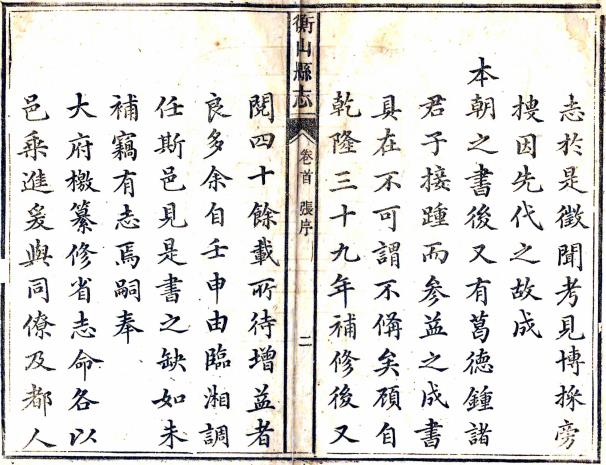 志於是徵聞考見博採旁
搜因先代之故成
本朝之書後又有葛德鍾諸
君子接踵而參益之成書
具在不可謂不備矣顧自
乾隆三十九年補修後又
衡山縣志
卷首 張序
二
閱四十餘載所待增益者
良多余自壬申由臨湘調
任斯邑見是書之缺如未
補竊有志焉嗣奉
大府檄纂修省志命各以
邑乘進爰與同僚及都人